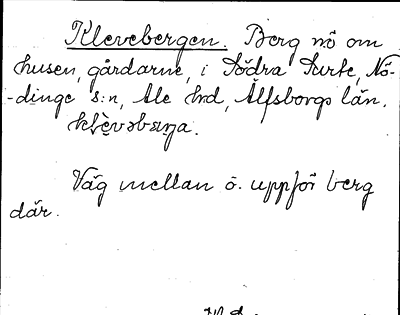 Klevebergen. Berg nö om
husen, gårdarne, i Södra Surte, Nö-
-dinge s:n, Ale hrd, Älfsborgs län.

Väg mellan o. uppför berg
där.